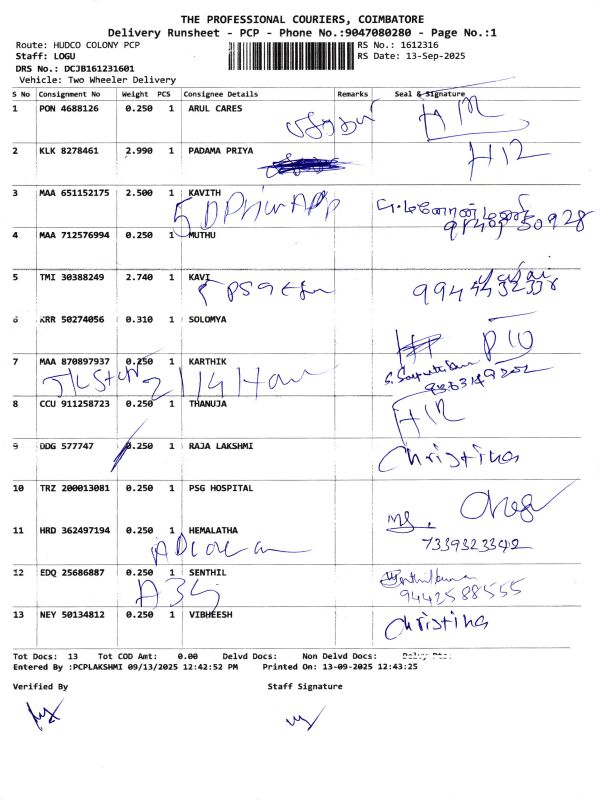 THE PROFESSIONAL COURIERS, COIMBATORE
Delivery Runsheet - PCP - Phone No.:9047080280 - Page No.:1
Route: HUDCO COLONY PCP RS No.: 1612316
Staff: LOGU RS Date: 13-Sep-2025
DRS No.: DCJB161231601
Vehicle: Two Wheeler Delivery
S No Consignment No Weight PCS Consignee Details Remarks Seal & Signature
1 PON 4688126 0.250 1 ARUL CARES
2 KLK 8278461 2.990 1 PADAMA PRIYA H12
3 MAA 651152175 2.500 1 KAVITH
4 MAA 712576994 0.250 1 MUTHU
5 TMI 30388249 2.740 1 KAVI
6 KRR 50274056 0.310 1 SOLOMYA
7 MAA 870897937 0.250 1 KARTHIK
8 CCU 911258723 0.250 1 THANUJA
9 DDG 577747 0.250 1 RAJA LAKSHMI Christina
10 TRZ 200013081 0.250 1 PSG HOSPITAL
11 HRD 362497194 0.250 1 HEMALATHA 7339323342
12 EDQ 25686887 0.250 1 SENTHIL Senthilkumar
9442588555
A 35
13 NEY 50134812 0.250 1 VIBHEESH Christina
Tot Docs: 13 Tot COD Amt: 0.00 Delvd Docs: Non Delvd Docs: Delvy Pts:
Entered By :PCPLAKSHMI 09/13/2025 12:42:52 PM Printed On: 13-09-2025 12:43:25
Verified By Staff Signature